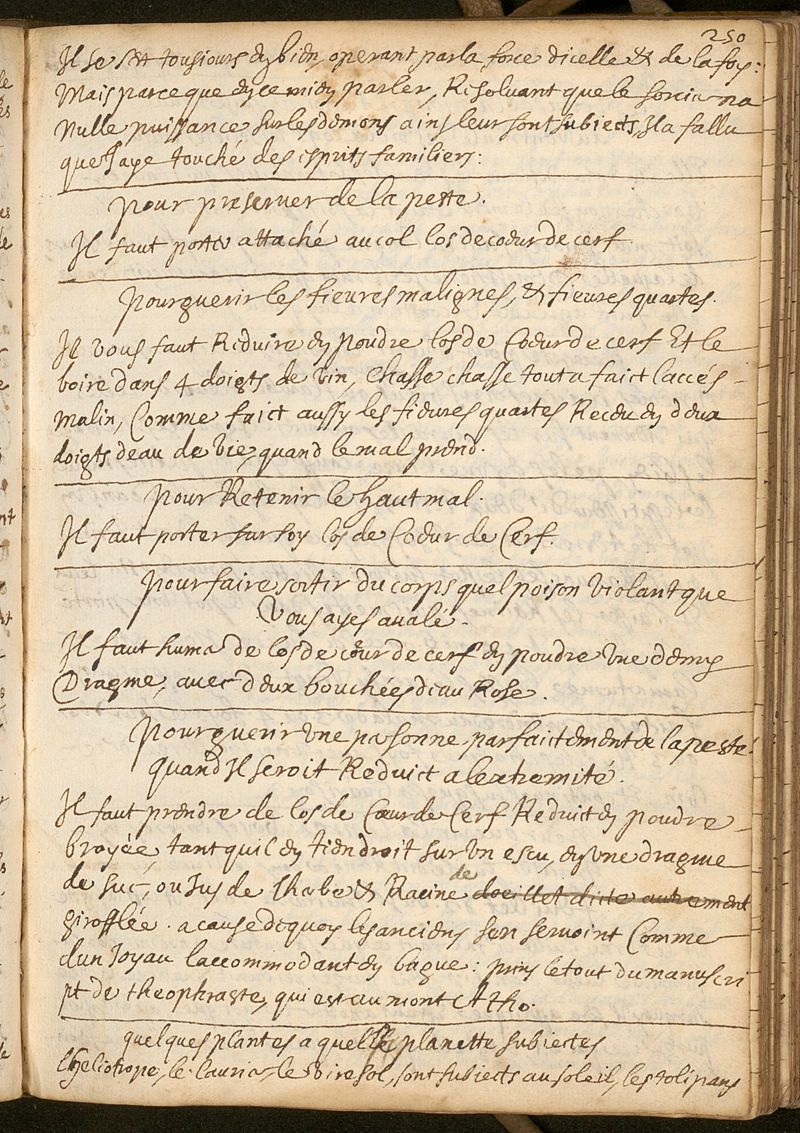 250
Il se sert tousiours en bien, operant par la force dicelle & de la foy:
Mais parce que en ce mien parler, Resoluant que le sorcier na
Nulle puissance sur les demons ains leur sont subiects, Il a fallu
que J'aye touché des esprits familiers:
pour preseruer de la peste.
Il faut porter attaché au col los de cœur de cerf
pour guerir les fieures malignes, & fieures quartes.
Il vous faut Reduire en poudre los de Cœur de cerf Et le
boire dans 4 doigts de vin, Chasse chasse tout a faict laccés
malin, Comme faict aussy les fieures quartes Receu en deux
doigts deau de vie, quand le mal prend.
Pour Retenir le haut mal.
Il faut porter sur soy los de Cœur de Cerf.
pour faire sortir du corps quel poison violant que
Vous ayes aualé.
Il faut humer de los de cœur de cerf en poudre vne demy
Dragme, auec deux bouchées deau Rose.
Pour guerir vne personne parfaictement de la peste
quand Il seroit Reduict a lextremité.
Il faut prendre de los de Cœur de Cerf Reduict en poudre
broyée tant quil en tiendroit sur vn escu, en vne dragme
de suc, ou Jus de lherbe & Racine de doeillet dicte autrement
girofflée. a cause dequoy les anciens sen seruoint Comme
dun Joyau laccommodant en bague: pris le tout du manuscri
pt de theophraste, qui est au mont Atho.
quelques plantes a quelle planette subiectes
lheliotrope, le laurier, le vire sol, sont subiects au soleil, les tolipans